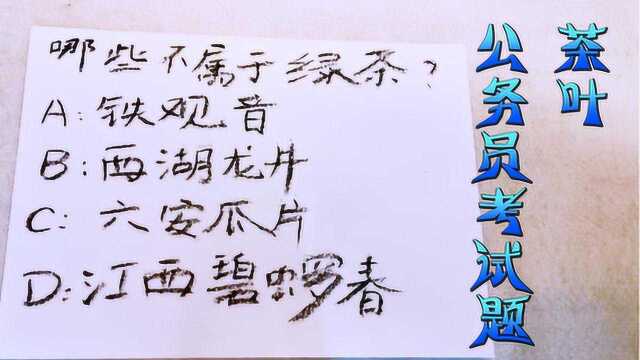 哪些不属于绿茶?
A:铁观音
B:西湖龙井
C:六安瓜片
D:江西碧螺春
茶叶
公务员考试题